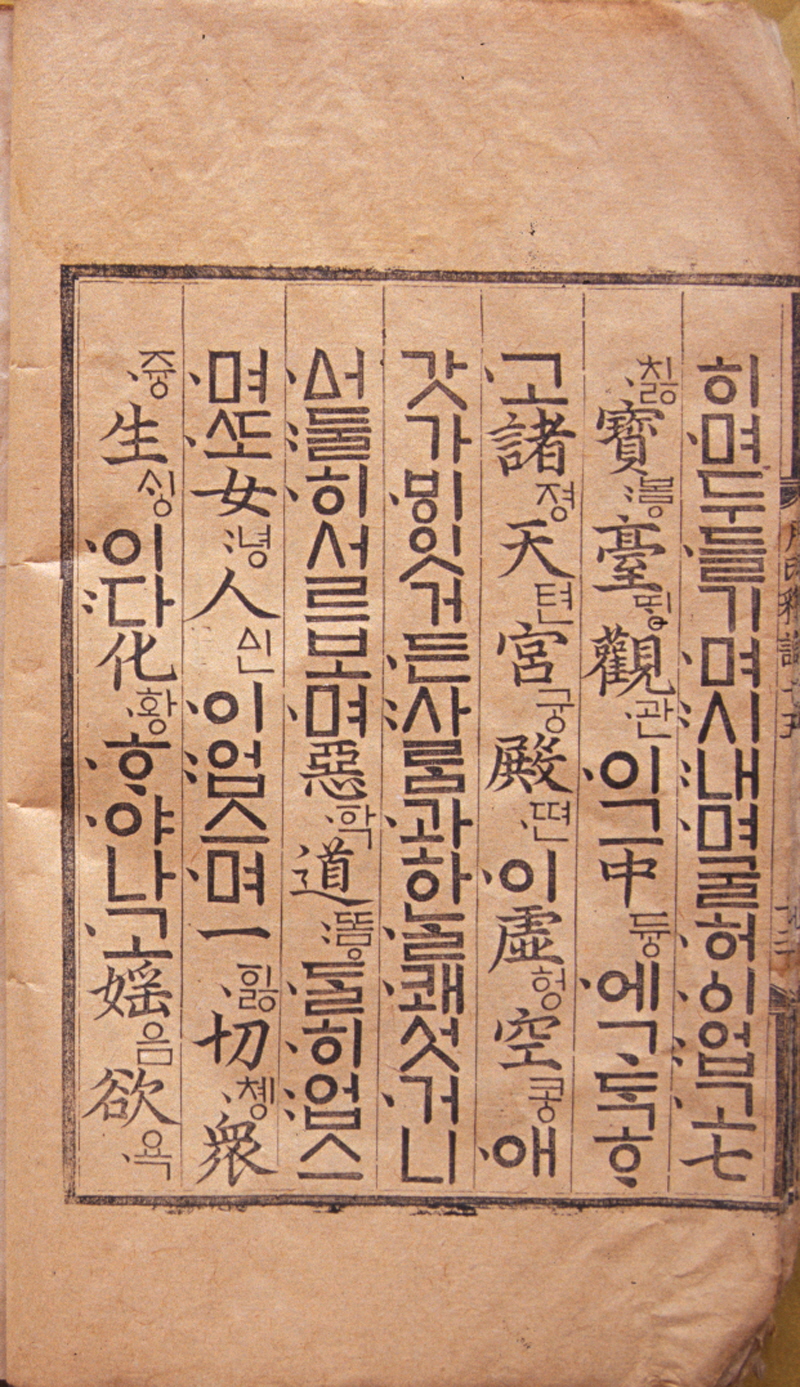 히며두들기며시내며굴허ᅌᅵ업고七
칧寶보ᇢ臺ᄄᆡᆼ觀관이그中듀ᇰ에ᄀᆞᄃᆞᆨᄒᆞ
고諸졍天텬宮궁殿뗜이虛헝空콩애
갓가ᄫᅵ잇거든사ᄅᆞᆷ과하ᄂᆞᆯ쾌섯거니
ᅀᅥ둘히서르보며惡ᅙᅡᆨ道또ᇢᄃᆞᆯ히업스
며ᄯᅩ女녕人ᅀᅵᆫ이업스며一ᅙᅵᇙ切쳉衆
즁生ᄉᆡᆼ이다化황ᄒᆞ야나고婬음欲욕